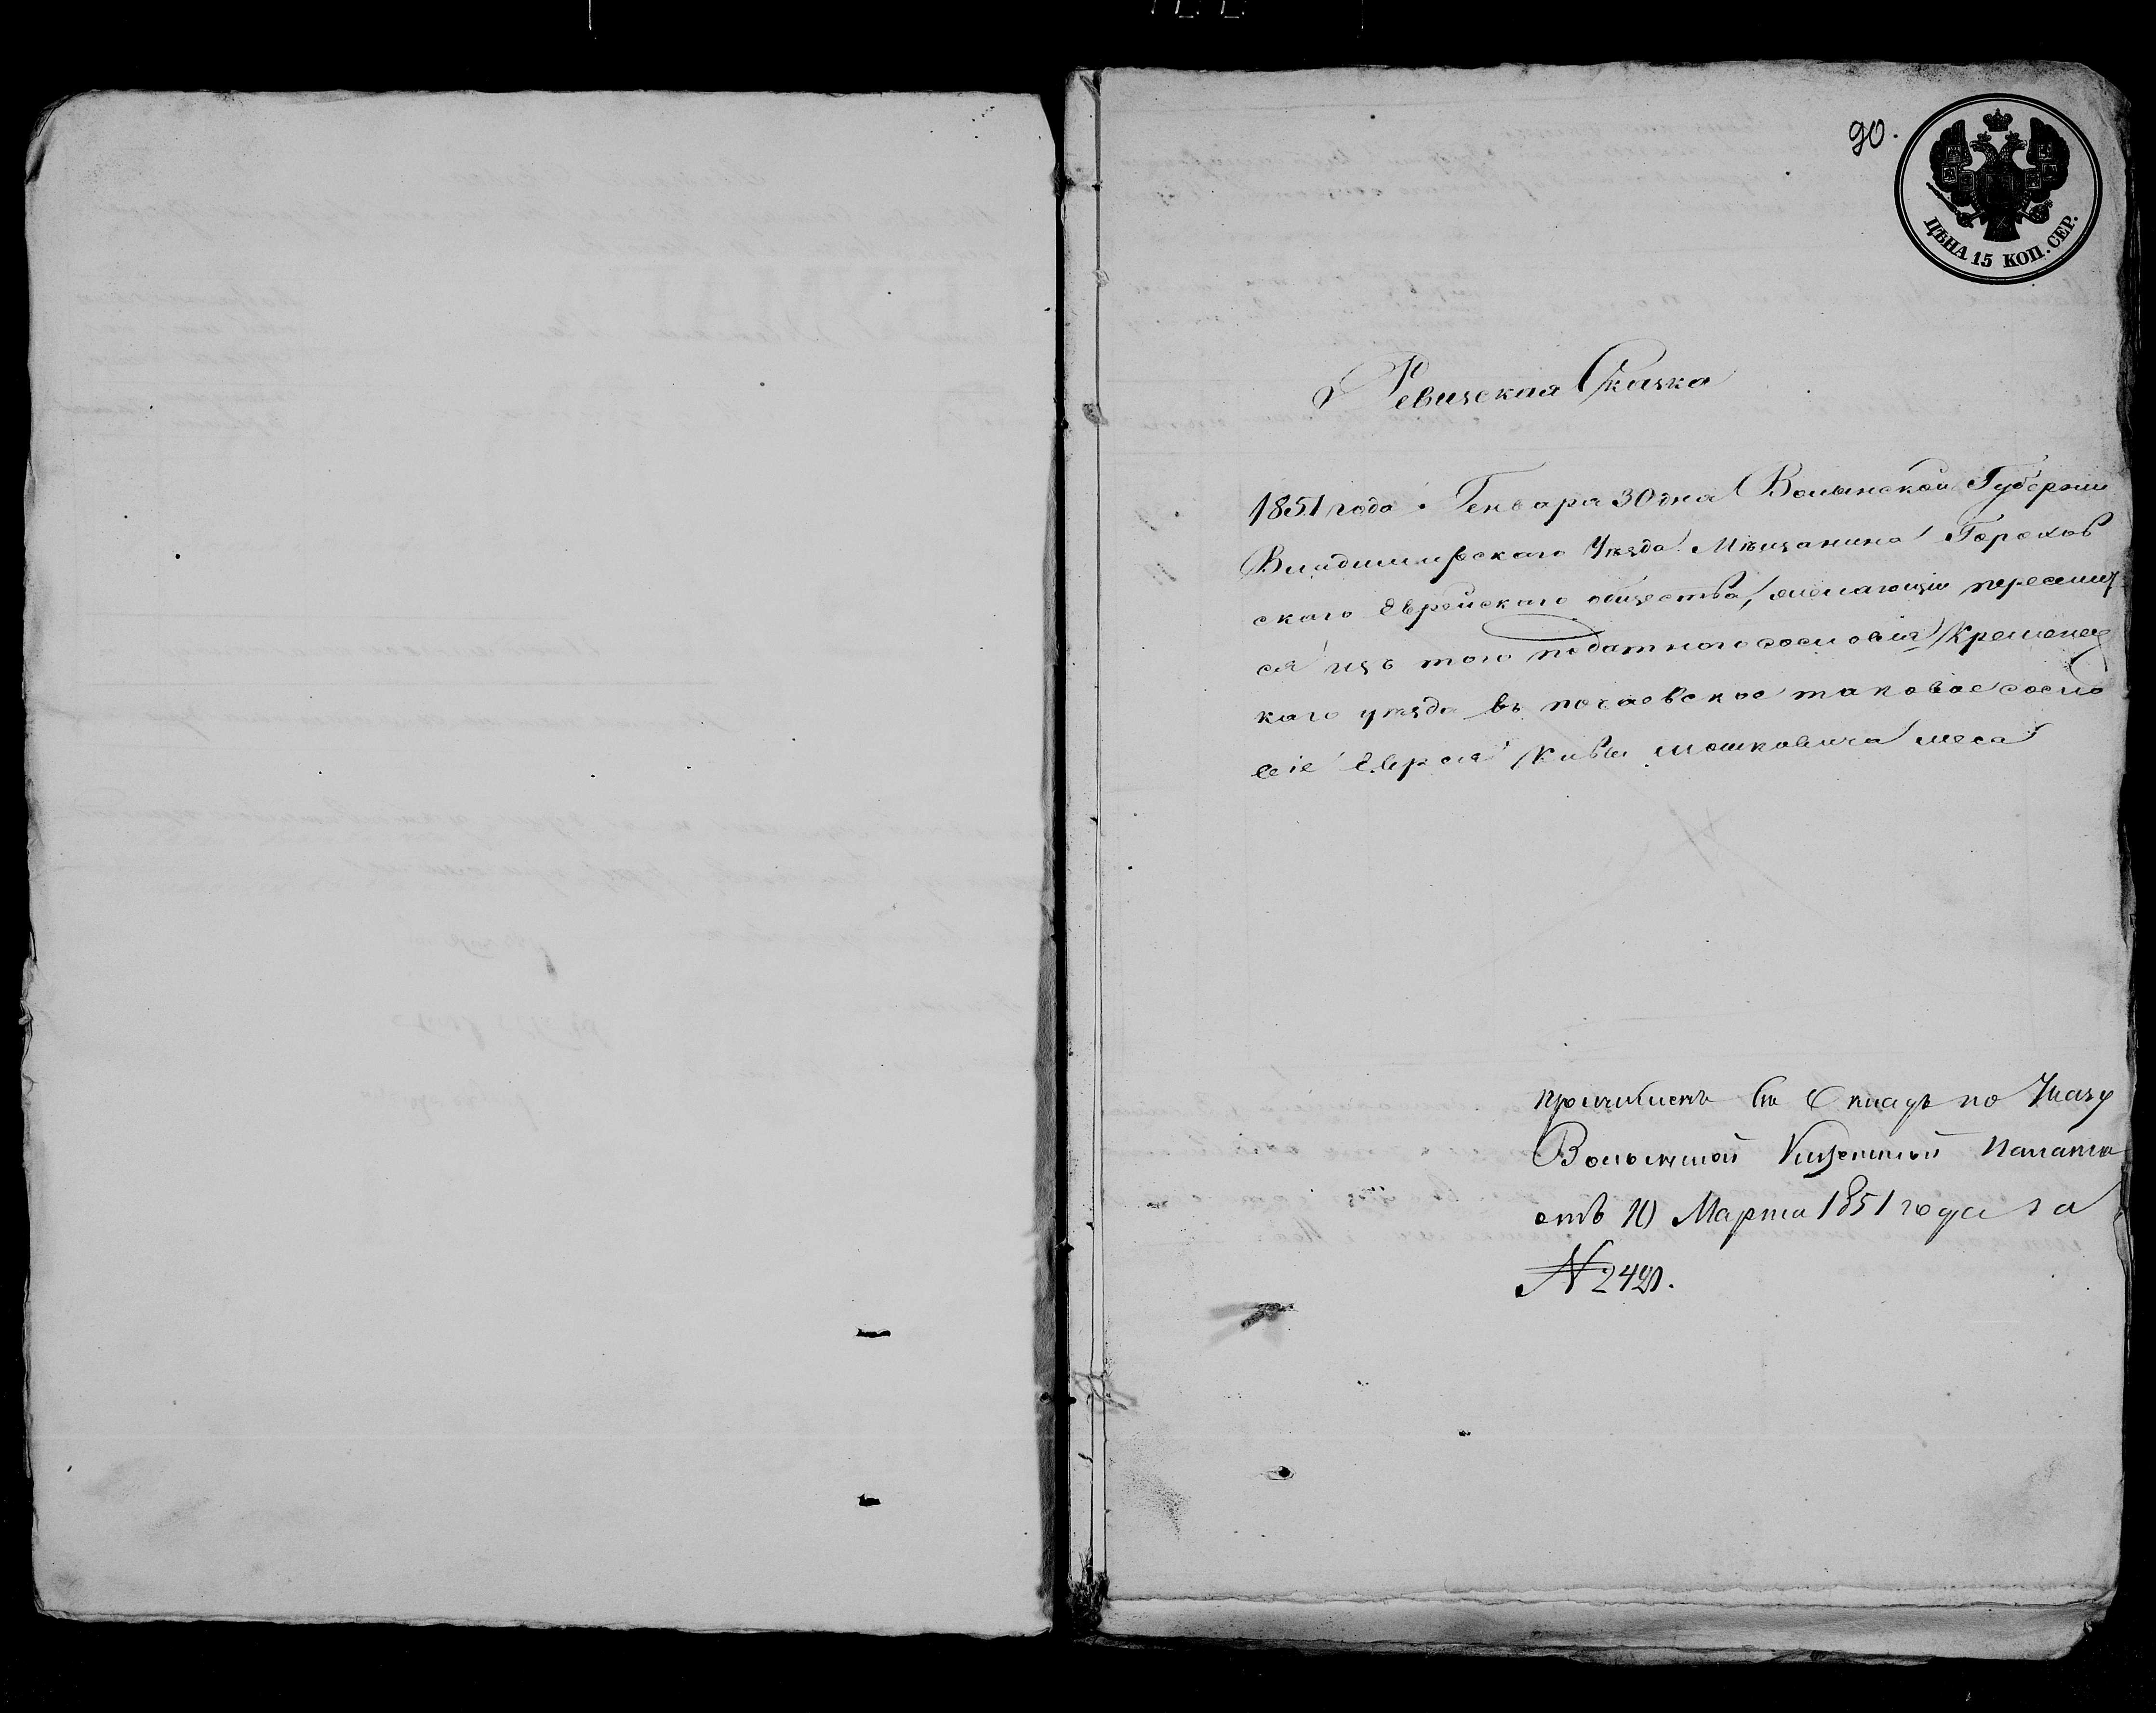 90.
ЦѢНА 15 КОП. СЕР.
Ревизская Сказка
1851 года Генваря 30 дня Волынской Губернии
Владимирского Уѣзда Мѣщанина Горохов
ского Еврейского общества, желающій переселит
ся изъ того податного сословія Кременец
каго уѣзда въ почаевское таковое сосло
віе Еврея Кивы Мошковича
причисленъ въ Окладъ по Указу
Волынской Казенной Палаты
отъ 10 Марта 1851 года за
№